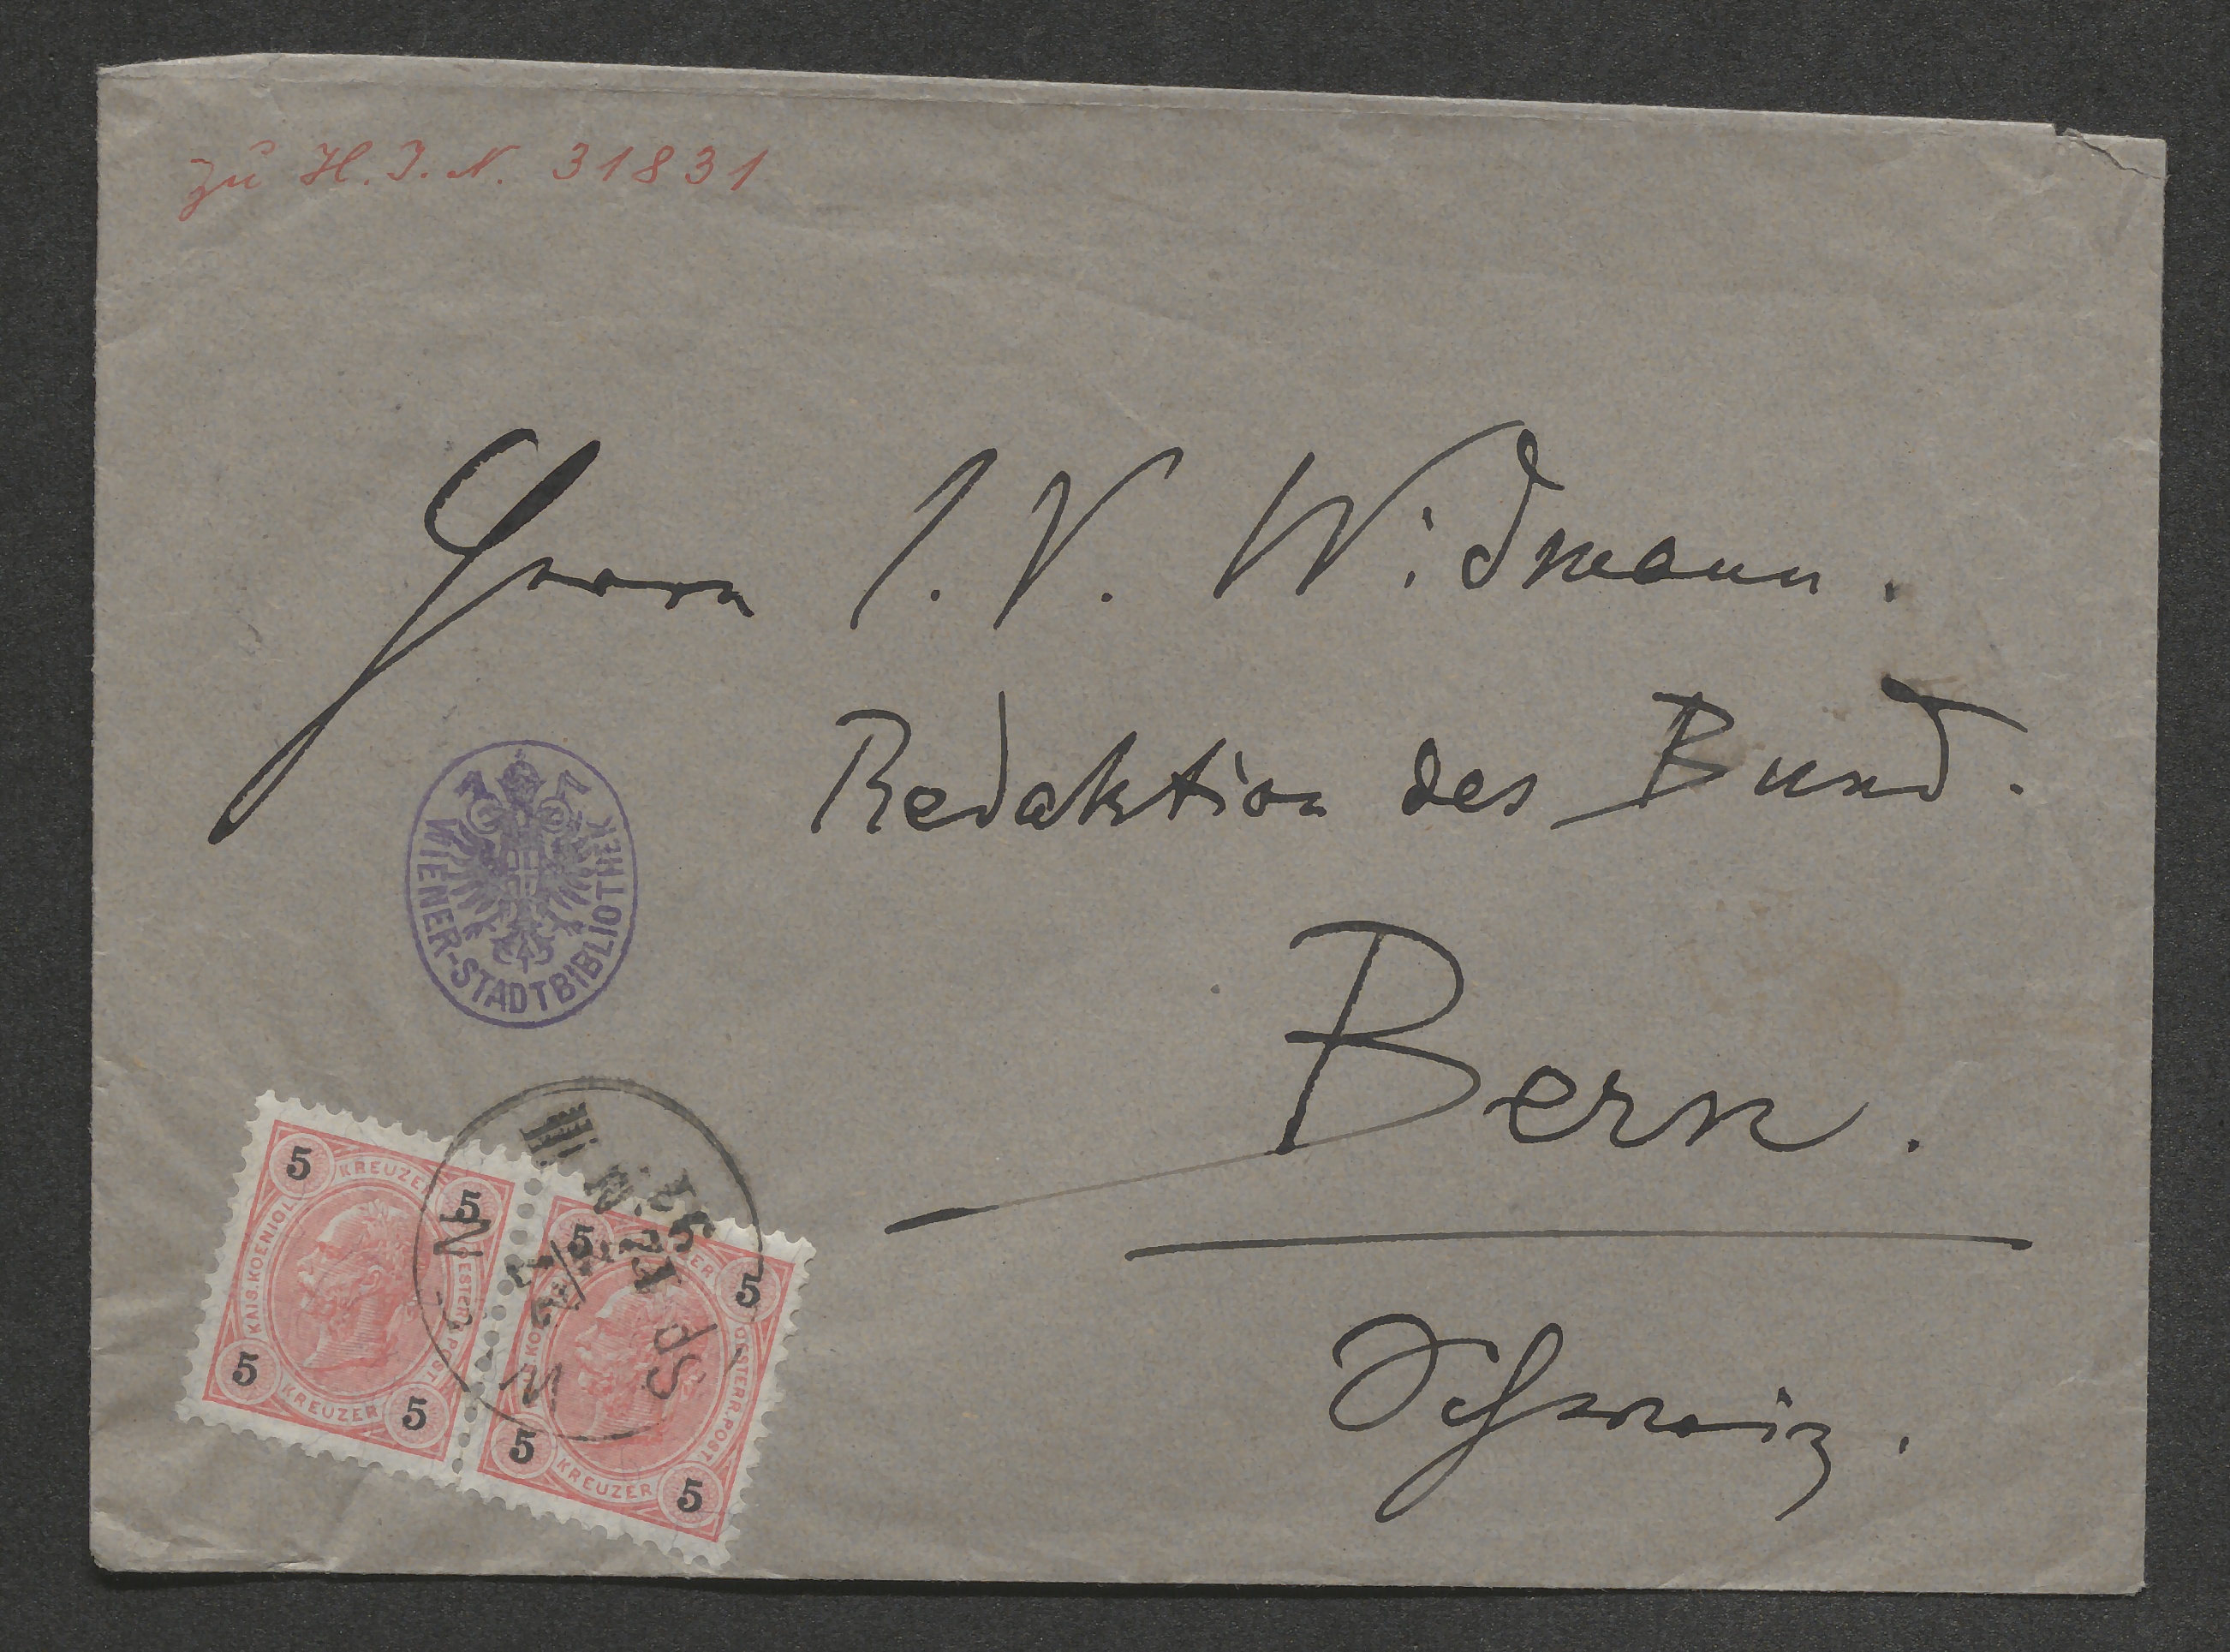 zu H. I. N. 31831
Herrn J. V. Widmann.
Redaktion des Bund.
WIENER-STADTBIBLIOTHEK
Bern.
Schweiz.
5 KREUZER 5
KAIS. KOENIGL. OESTERR. POST.
5 KREUZER 5
5 5
OESTERR. POST
5 KREUZER 5